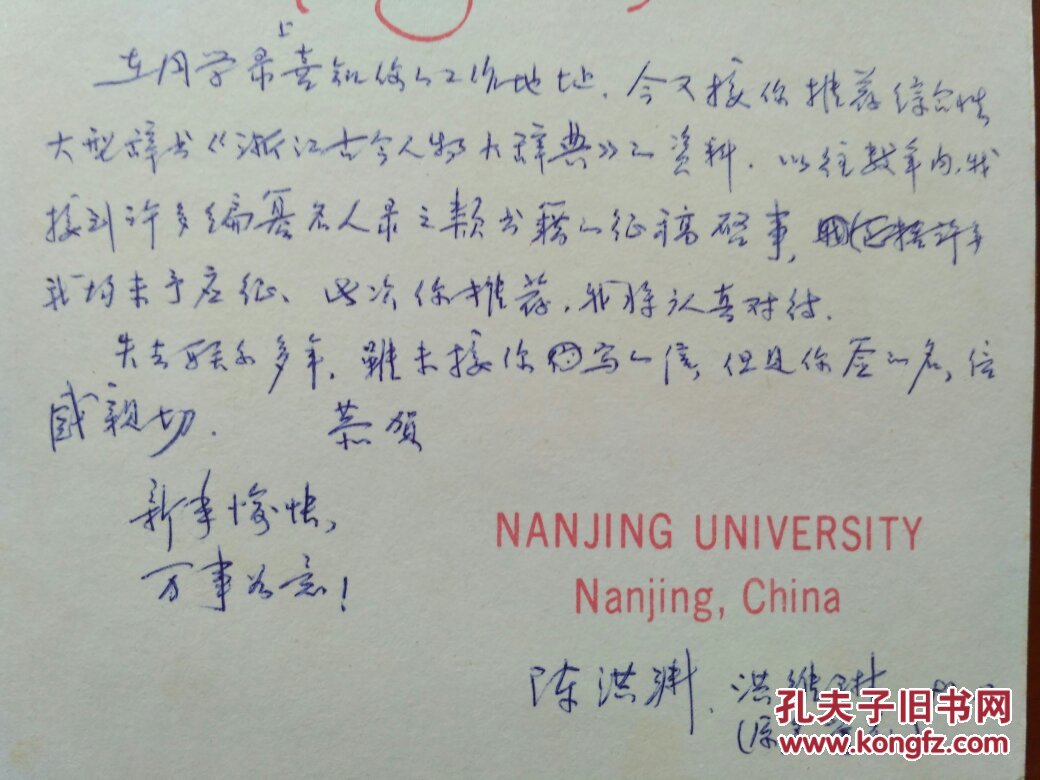 在同学录上喜知你的工作地址。今又接你推荐综合性
大型辞书《浙江古今人物大辞典》的资料。以往数年内,我
接到许多编纂名人录之类书籍的征稿启事,
我均未予应征、此次你推荐,我将认真对待。
失去联系多年,虽未接你写的信,但是你签的名,倍
感亲切. 恭贺
新年愉快,
万事如意!
NANJING UNIVERSITY
Nanjing, China
陈洪渊、洪
孔夫子旧书网
www.kongfz.com